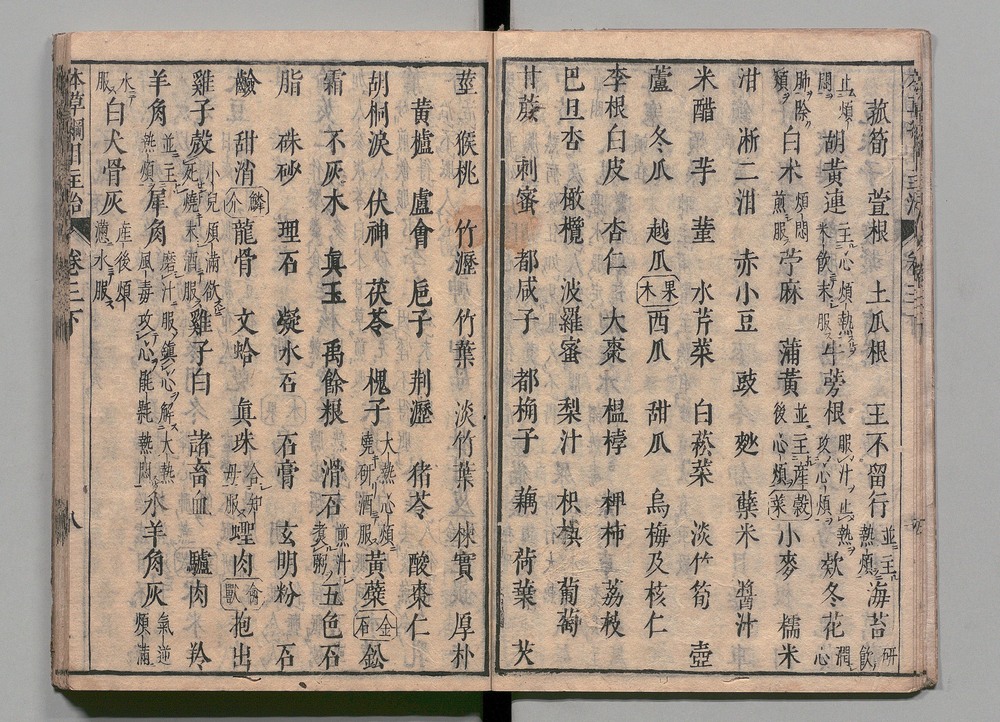 菰筍 萱根 土瓜根 王不留行並主熱煩海苔研飲
止煩悶胡黃連主心煩熱米飲末服牛蒡根服汁止熱攻心煩款冬花潤心
肺除煩白朮煩悶煎服苧麻 蒲黃並主產後心煩穀菜小麥 糯米
泔 淅二泔 赤小豆 豉 麴 糵米 醬汁
米醋 芋 堇 水芹菜 白菘菜 淡竹筍 壺
蘆 冬瓜 越瓜果木西瓜 甜瓜 烏梅及核仁
李根白皮 杏仁 大棗 榲桲 椑柿 荔枝
巴旦杏 橄欖 波羅蜜 梨汁 枳椇 葡萄
甘蔗 刺蜜 都咸子 都桷子 藕 荷葉 芡
莖 猴桃 竹瀝 竹葉 淡竹葉 楝實 厚朴
黃櫨 盧會 巵子 荆瀝 猪苓 酸棗仁
胡桐淚 伏神 茯苓 槐子大熱心煩燒研酒服黃蘗金石鈆
霜 不灰木 眞玉 禹餘粮 滑石煎汁煮粥五色石
脂 硃砂 理石 凝水石 石膏 玄明粉 石
鹼 甜消鱗介龍骨 文蛤 眞珠合知母服蟶肉禽獸抱出
雞子殼小兒風滿欲死燒末酒服雞子白 諸畜血 驢肉 羚
羊角並主熱煩犀角磨汁服鎮心解大熱風毒攻心毷氉熱悶水羊角灰氣逆煩滿
水服白犬骨灰產後煩懣水服
本草綱目主治 卷三下 八